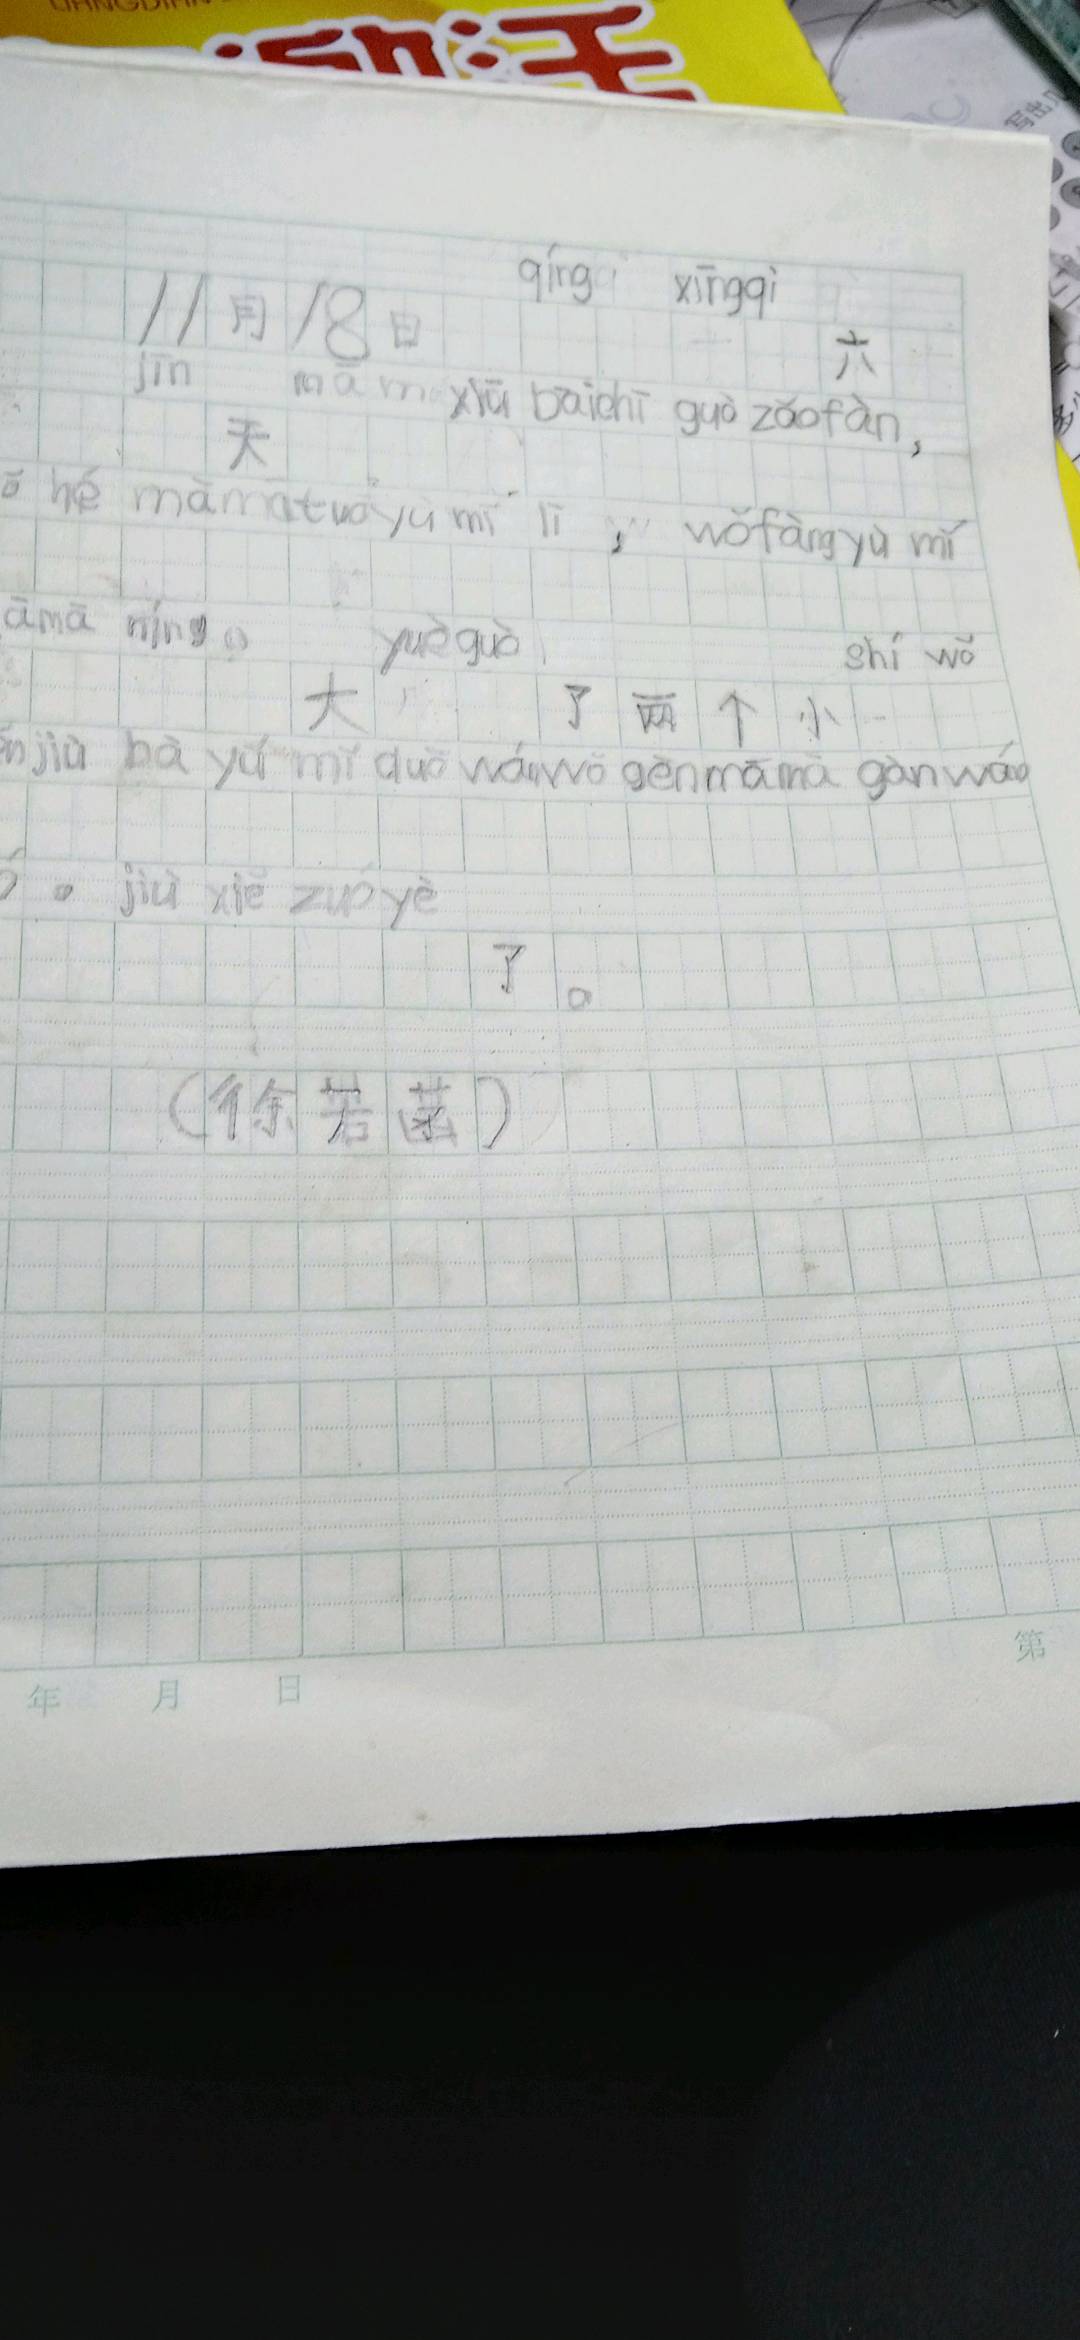 11月18日 qíng xīngqì 六
jīn 天 māma xiū bāichī guò zǎofàn,
hé māmātuōyùmǐ lì, wǒfàngyùmǐ
āmā níng。 yuèguò 大 了两个小 shí wǒ
jiù bà yǔmǐ duō wán wǒ gēnmāmā gànwán
。jiù xiě zuóyè 了。
(徐若菡)
年 月 日 第